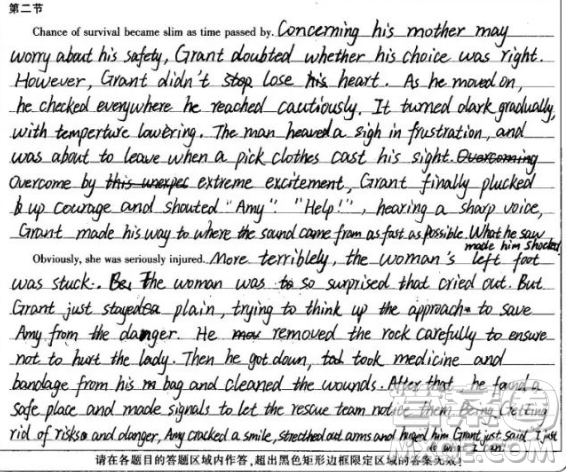 第二节
Chance of survival became slim as time passed by. Concerning his mother may
worry about his safety, Grant doubted whether his choice was right.
However, Grant didn't stop lose his heart. As he moved on,
he checked everywhere he reached cautiously. It turned dark gradually,
with temperture lowering. The man heaved a sigh in frustration, and
was about to leave when a pick clothes cast his sight. Overcoming
Overcome by this unexpec extreme excitement, Grant finally plucked
up courage and shouted "Amy". "Help!", hearing a sharp voice,
Grant made his way to where the sound came from as fast as possible. What he saw
made him shocked
Obviously, she was seriously injured. More terriblely, the woman's left foot
was stuck. The woman was to so surprised that cried out. But
Grant just stayed a plain, trying to think up the approach to save
Amy from the danger. He removed the rock carefully to ensure
not to hurt the lady. Then he got down, took medicine and
bandage from his bag and cleaned the wounds. After that he found a
safe place and made signals to let the rescue team notice them. Being Getting
rid of risks and danger, Amy cracked a smile, strecthed out arms and huged him. Grant just said "I just
请在各题目的答题区域内作答,超出黑色矩形边框限定区域的答案无效!